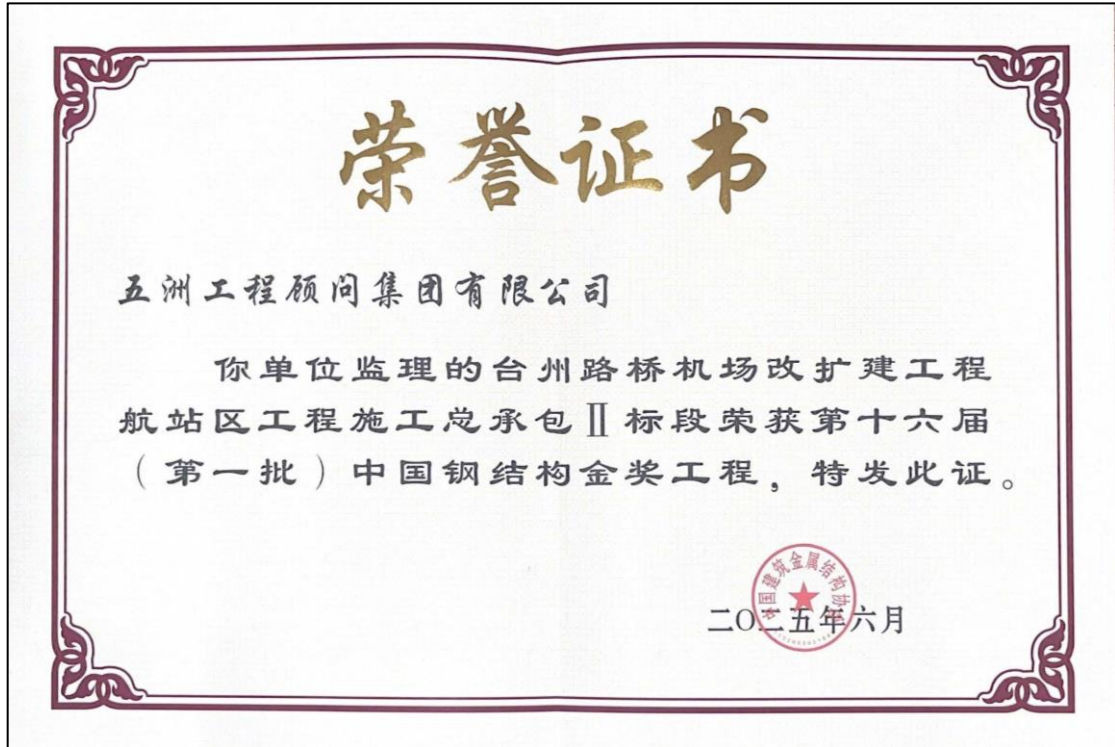 荣誉证书
五洲工程顾问集团有限公司
你单位监理的台州路桥机场改扩建工程
航站区工程施工总承包Ⅱ标段荣获第十六届
（第一批）中国钢结构金奖工程，特发此证。
中国建筑金属结构协会
二〇二五年六月